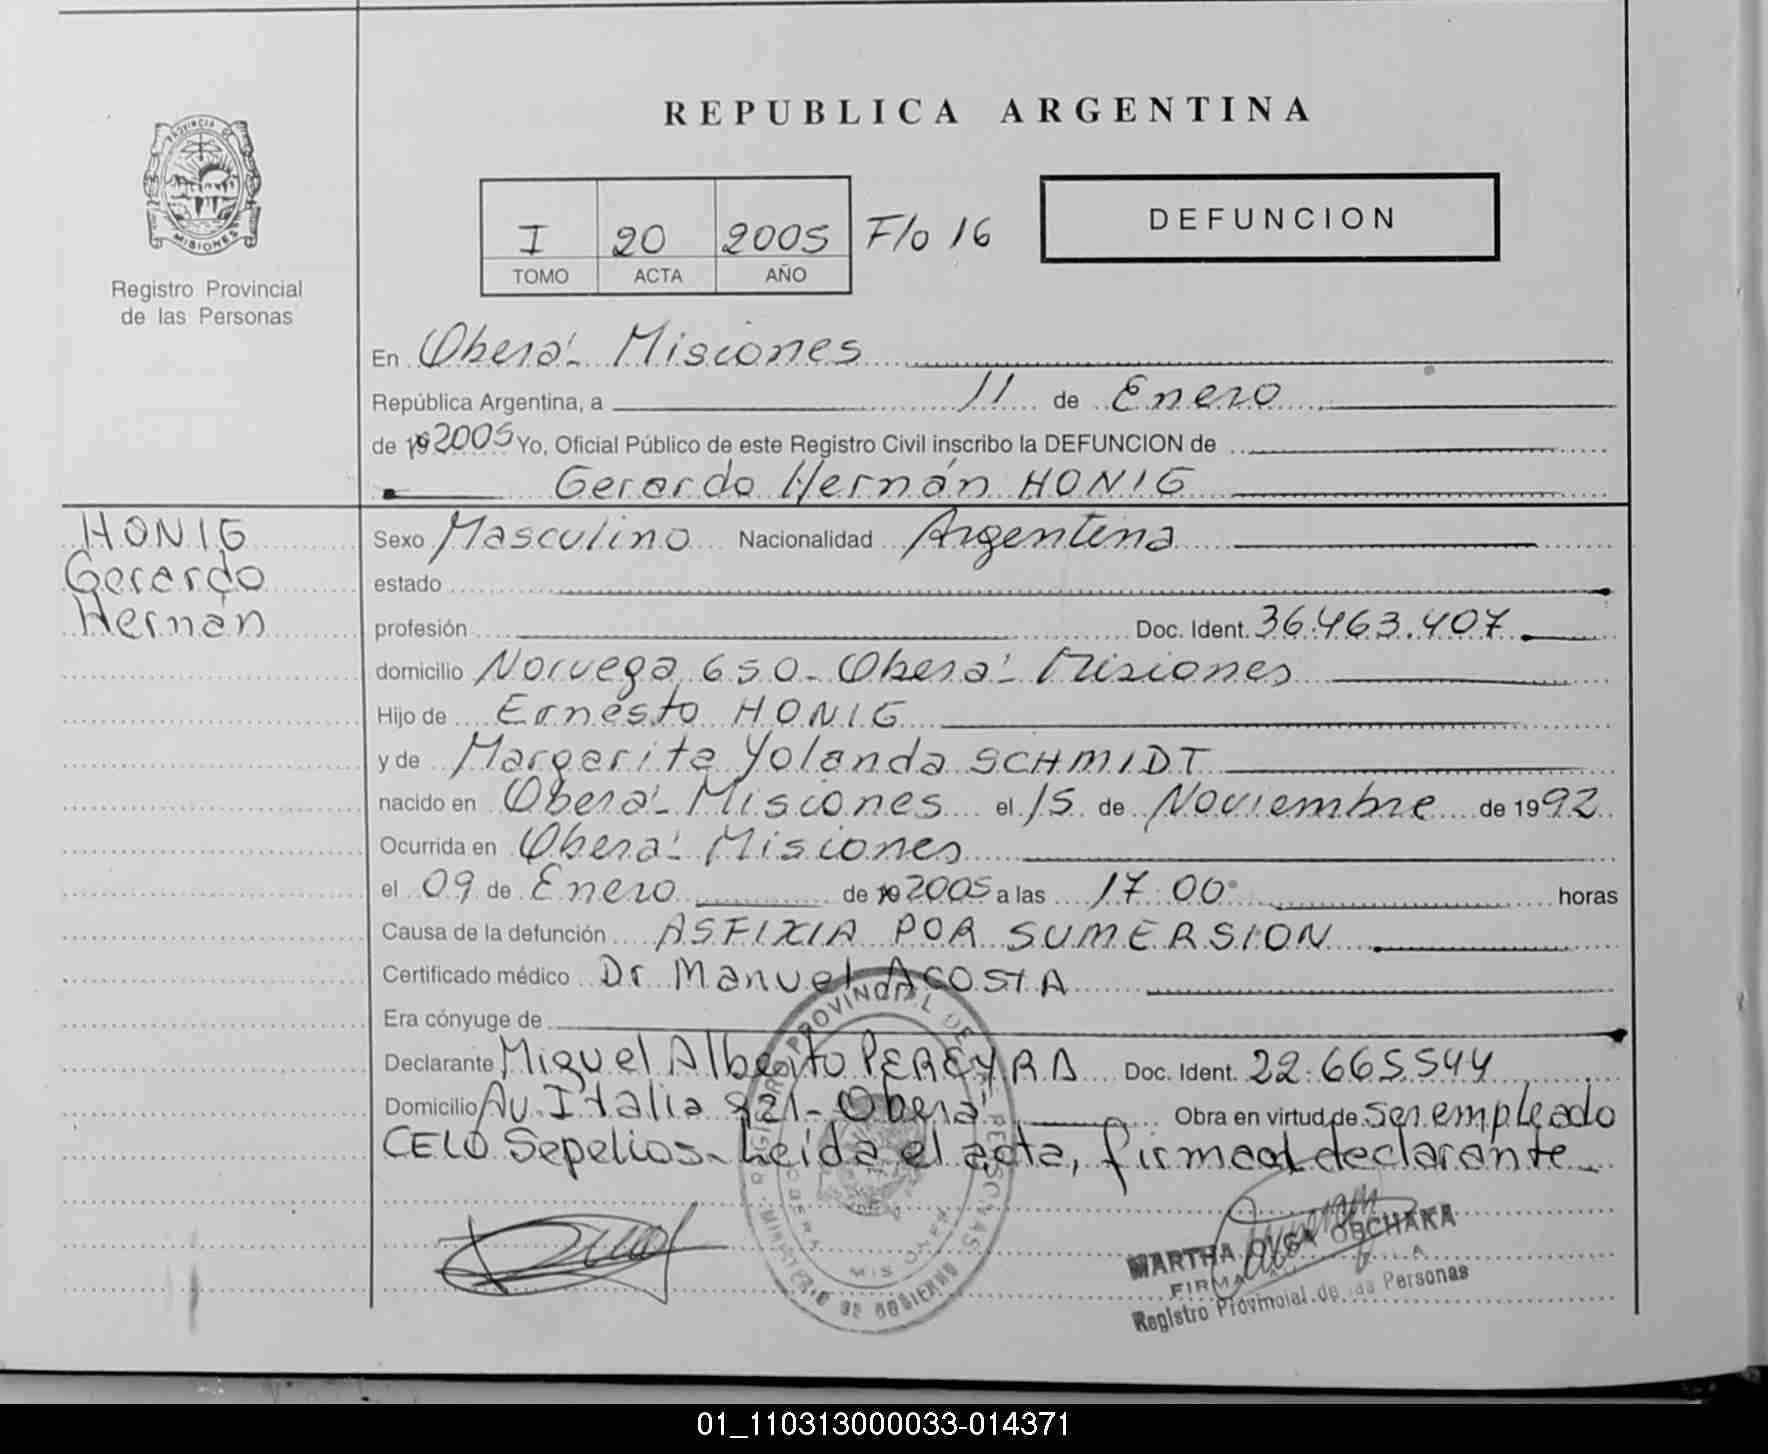 REPUBLICA ARGENTINA
PROVINCIA DE
MISIONES
Registro Provincial
de las Personas
I 20 2005 F/o 16
TOMO ACTA AÑO
DEFUNCION
En Oberá - Misiones
República Argentina, a 11 de Enero
de 19 2005 Yo, Oficial Público de este Registro Civil inscribo la DEFUNCION de
Gerardo Hernán HONIG
HONIG
Gerardo
Hernán
Sexo Masculino Nacionalidad Argentina
estado
profesión Doc. Ident. 36.463.407
domicilio Noruega 650 - Oberá - Misiones
Hijo de Ernesto HONIG
y de Margarita Yolanda SCHMIDT
nacido en Oberá - Misiones el 15 de Noviembre de 1992
Ocurrida en Oberá - Misiones
el 09 de Enero de 19 2005 a las 17:00 horas
Causa de la defunción ASFIXIA POR SUMERSION
Certificado médico Dr Manuel ACOSTA
Era cónyuge de
Declarante Miguel Alberto PEREYRA Doc. Ident. 22.665.544
Domicilio Av. Italia 821 - Oberá Obra en virtud de ser empleado
CELO Sepelios - Leída el acta, firma el declarante
REGISTRO PROVINCIAL DE PERSONAS
MINISTERIO DE GOBIERNO
OBERA
MARTHA OLGA OBCHAKA
FIRMA
Registro Provincial de las Personas
01_110313000033-014371